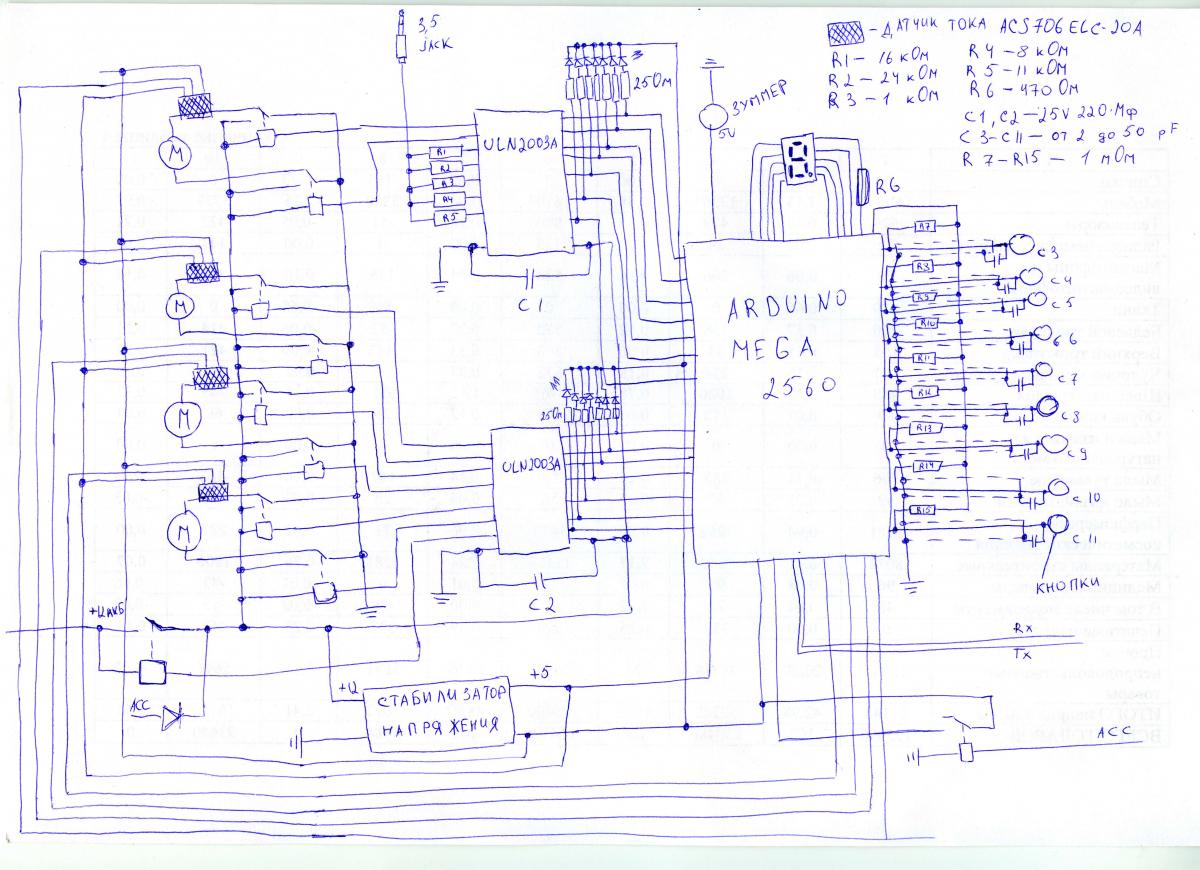 3,5
jACK
- ДАТЧИК ТОКА ACS706ELC-20A
R1 - 16 кОм
R2 - 24 кОм
R3 - 1 кОм
R4 - 8 кОм
R5 - 11 кОм
R6 - 470 Ом
C1, C2 - 25V 220 Мф
C3-C11 - от 2 до 50 pF
R7-R15 - 1 мОм
25Ом
ЗУММЕР
5V
ULN2003A
R1
R2
R3
R4
R5
C1
R6
M
M
M
M
ARDUINO
MEGA
2560
R7
R8
R9
R10
R11
R12
R13
R14
R15
C3
C4
C5
C6
C7
C8
C9
C10
C11
КНОПКИ
25Ом
ULN2003A
C2
+12АКБ
ACC
+12
+5
СТАБИЛИЗАТОР
НАПРЯЖЕНИЯ
Rx
Tx
ACC